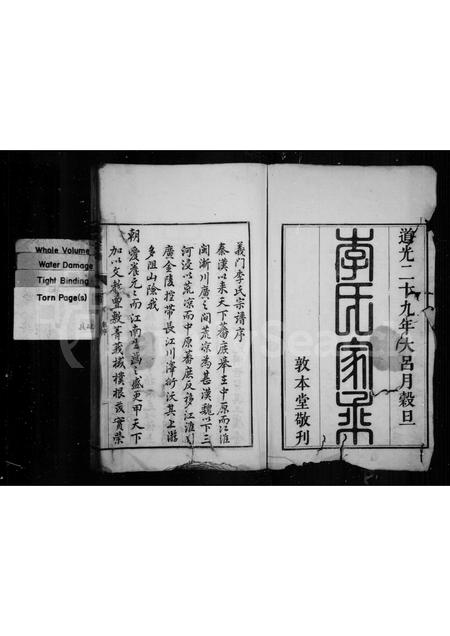 道光二十九年大呂月穀旦
李氏家乘
敦本堂敬刊
義門李氏宗譜序
秦漢以來天下蕃庶舉在中原而江淮
閩浙川廣之間荒凉為甚漢魏以下三
河浸以荒凉而中原蕃庶反移江淮
廣金陵控帶長江川澤衍沃其上游
多阻山險我
朝愛養元元而江南生齒之盛更甲天下
加以文教覃敷菁莪棫樸根茂實榮
Whole Volume
Water Damage
Tight Binding
Torn Page(s)